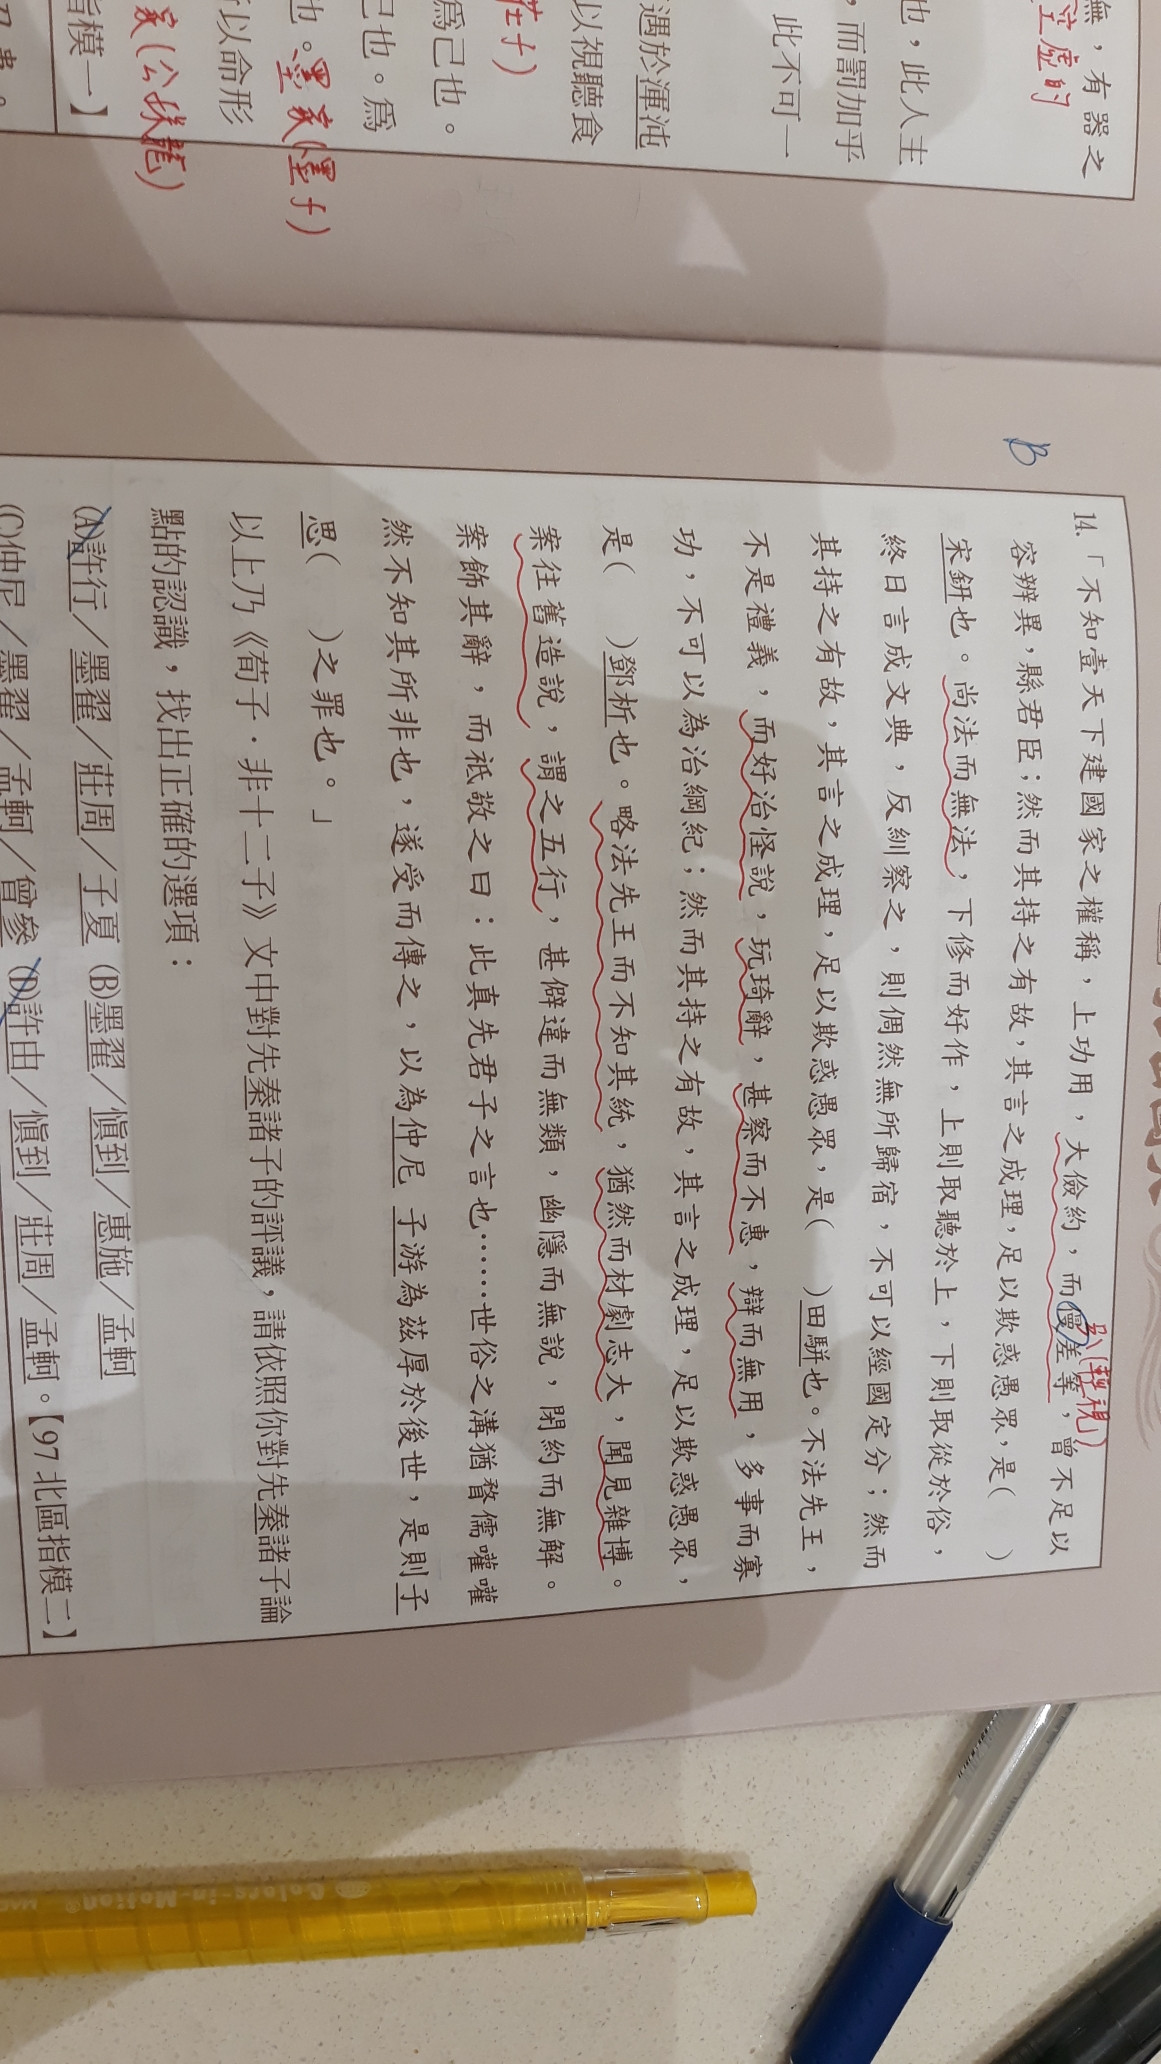 無，有器之
空虛的
也，此人主
，而罰加乎
此不可一
遇於渾沌
以視聽食
莊子)
爲己也。
己也。爲
也。墨家(墨子)
所以命形
家(公孫龍)
指模一】
B
14.「不知壹天下建國家之權稱，上功用，大儉約，而僈差等，曾不足以
(輕視)
容辨異，縣君臣；然而其持之有故，其言之成理，足以欺惑愚眾，是(　　)
宋鈃也。尚法而無法，下修而好作，上則取聽於上，下則取從於俗，
終日言成文典，反紃察之，則倜然無所歸宿，不可以經國定分；然而
其持之有故，其言之成理，足以欺惑愚眾，是(　　)田駢也。不法先王，
不是禮義，而好治怪說，玩琦辭，甚察而不惠，辯而無用，多事而寡
功，不可以為治綱紀；然而其持之有故，其言之成理，足以欺惑愚眾，
是(　　)鄧析也。略法先王而不知其統，猶然而材劇志大，聞見雜博。
案往舊造說，謂之五行，甚僻違而無類，幽隱而無說，閉約而無解。
案飾其辭，而祇敬之曰：此真先君子之言也……世俗之溝猶瞀儒嚾嚾
然不知其所非也，遂受而傳之，以為仲尼 子游為茲厚於後世，是則子
思(　　)之罪也。」
以上乃《荀子．非十二子》文中對先秦諸子的評議，請依照你對先秦諸子論
點的認識，找出正確的選項：
(A)許行／墨翟／莊周／子夏 (B)墨翟／慎到／惠施／孟軻
(C)仲尼／墨翟／孟軻／曾參 (D)許由／慎到／莊周／孟軻。【97 北區指模二】
Colors-in-Motion